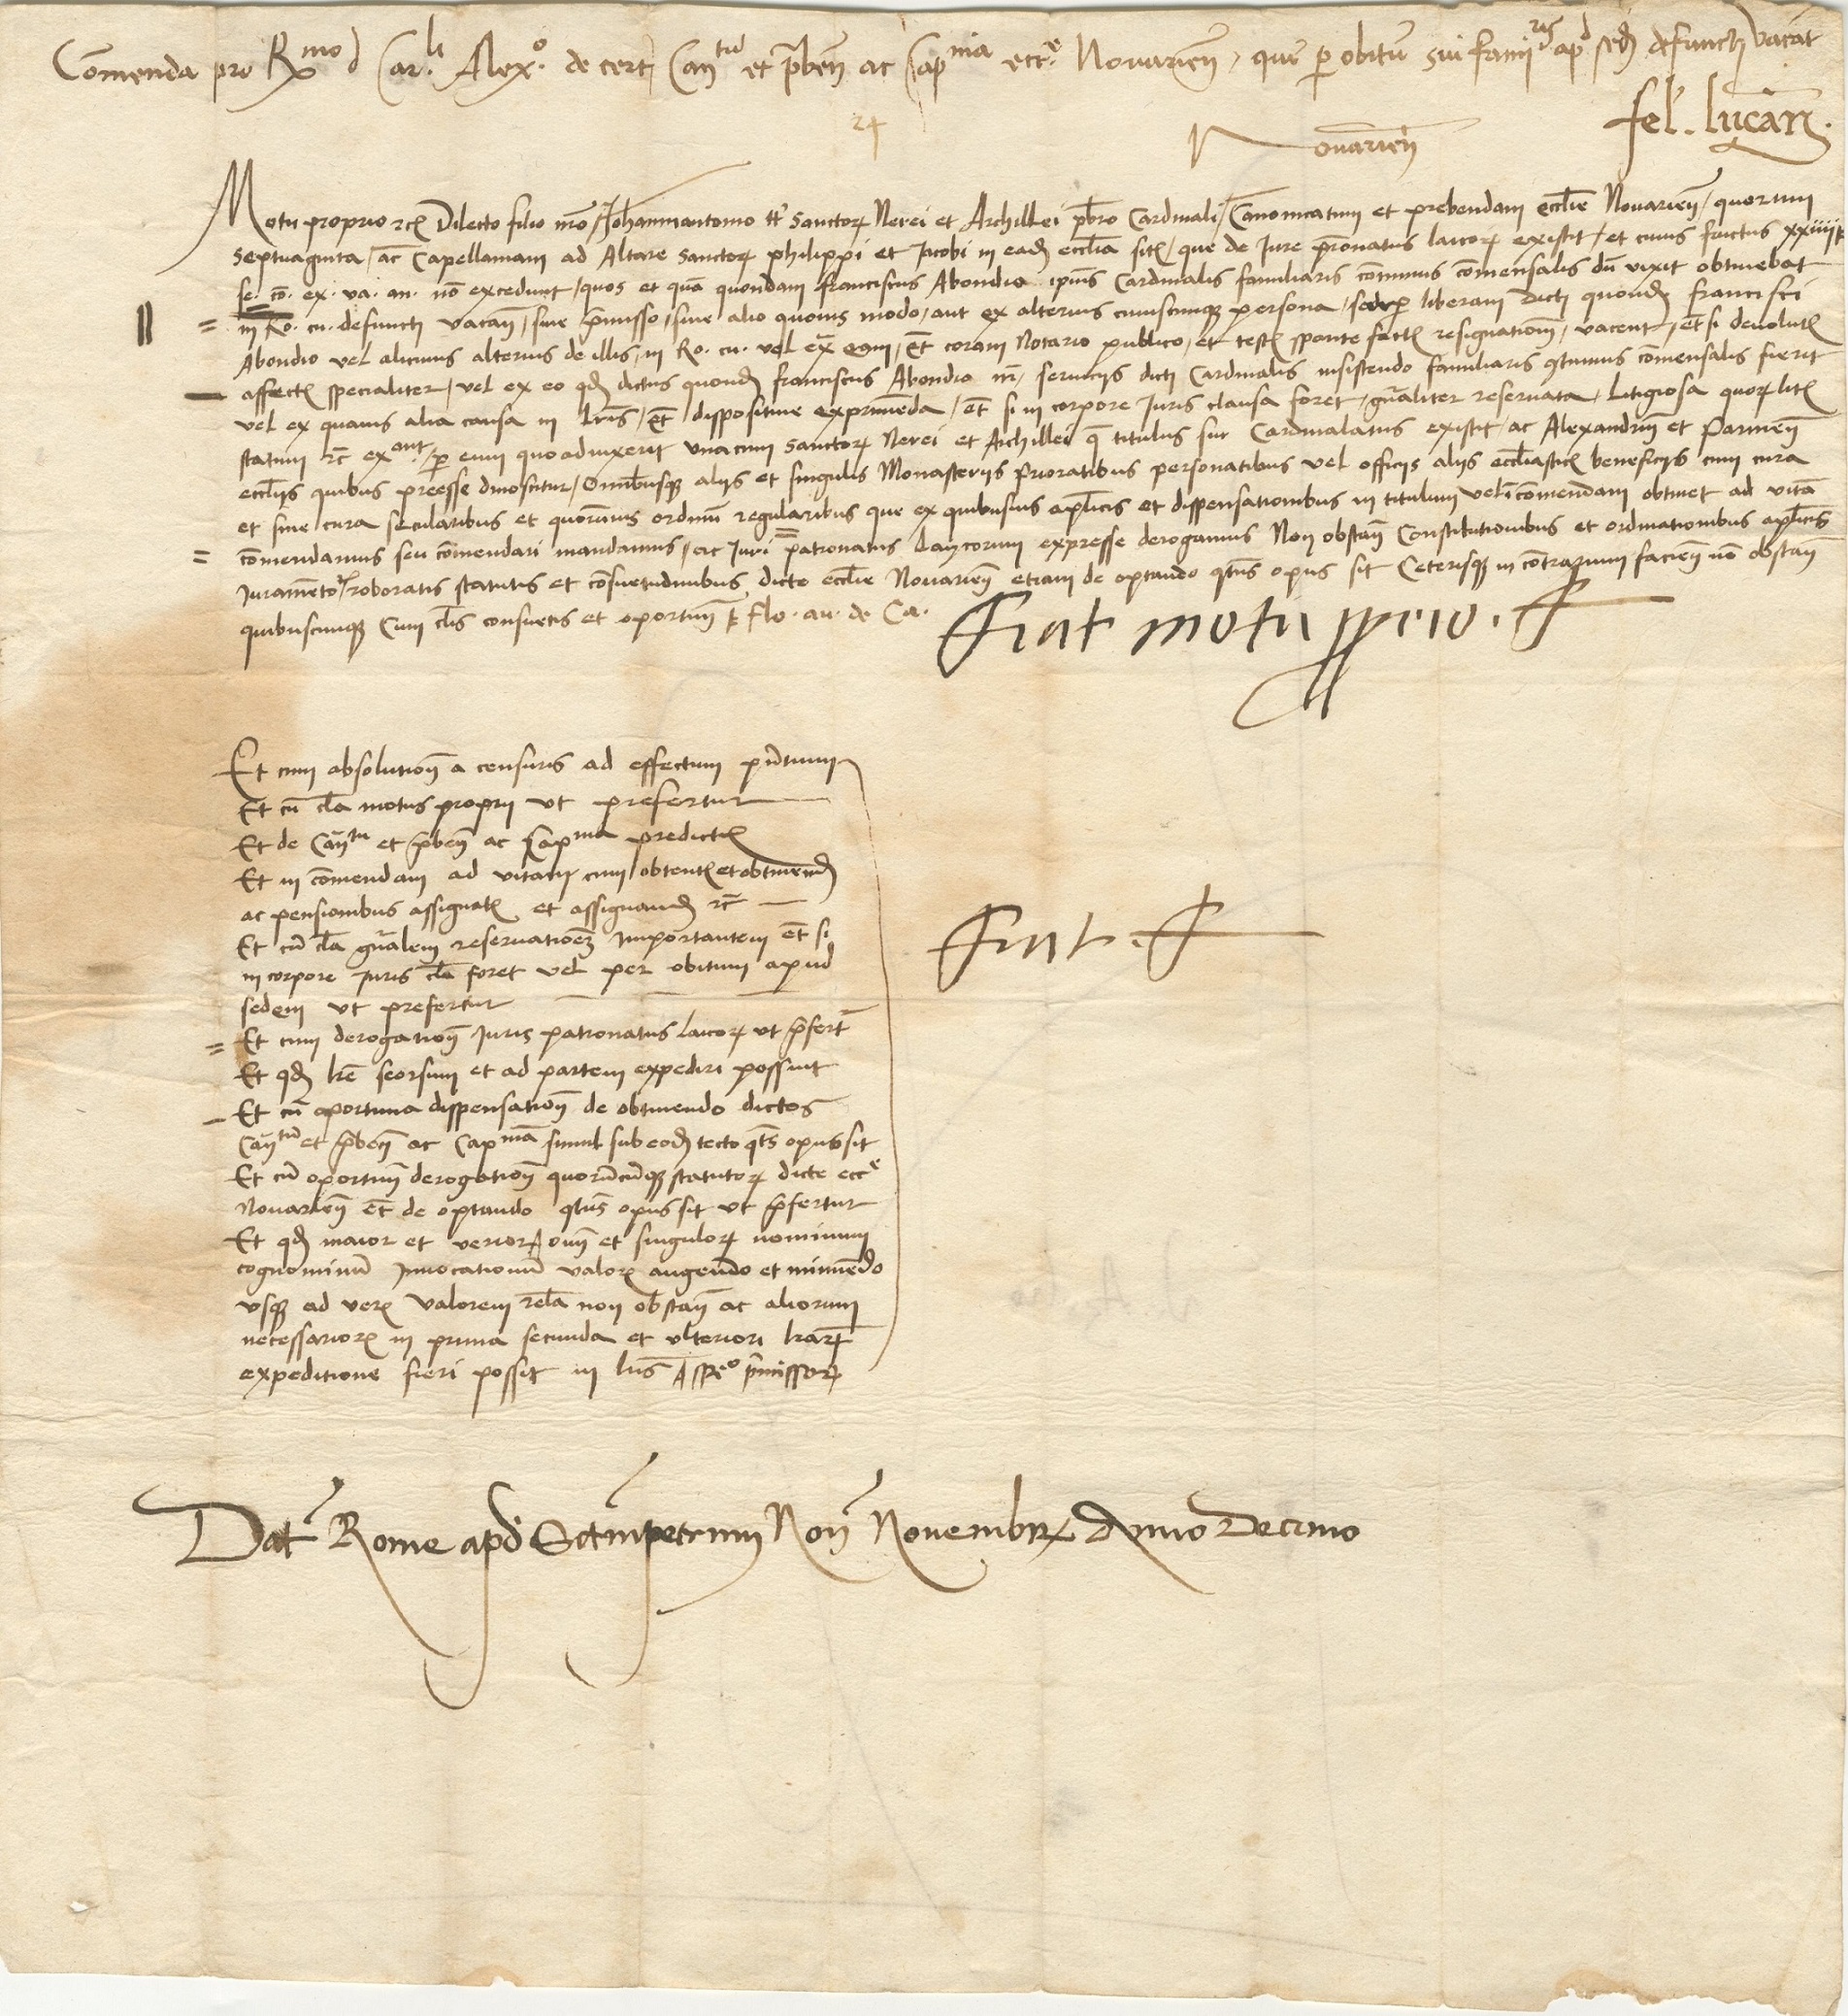 Comenda pro R^mo d Car.^li Alex.^o de certj Can^tu et p̄beñ ac Cap^nia ecc.^e Novarieñ, que p obitū sui fami^ris ap^d sedē defuncti vacāt
fel. lucañ.
24
Novarieñ
Motu proprio rc̄ Dilecto filio nr̄o Johanniantonio tt^i sanctoꝝ Nerei et Archillei p̄bro Cardinali / Canonicatum et prebendam eccl̄ie Novarieñ / quorum
septuaginta / ac Capellaniam ad Altare sanctoꝝ philippi et Jacobi in eadē eccl̄ia sitā / que de Jure pr̄onatus laicoꝝ existit / et cuius fructus xxiiii^or
fl. cō. ex. va. an. nō excedunt / quos et quā quondam franciscus Abondio ipius Cardinalis familiaris cōtinuus cōmensalis dū vixit obtinebat
in Ro. cu. defuncti vacañ / sive p̄misso / sive alio quovis modo / aut ex alterius cuiuscunqꝫ persona / seu p liberam dicti quondā francisci
Abondio vel alicuius alterius de illis / in Ro. cu. vel ex̄ eam / et̄ coram Notario publico / et testibꝫ sponte factā resignationē / vacent / et̄ si devolutā
affectā specialiter / vel ex eo qđ dictus quondā franciscus Abondio serviciis dicti Cardinalis insistendo familiaris cōtinuus cōmensalis fuerit
vel ex quavis alia causa in lr̄is / et̄ dispositive exprimenda / et̄ si in corpore Juris clausa foret / gn̄aliter reservata / Litigiosa quoꝝ litis
statum rc̄ ex^ant / p eum quoadvixerit unacum sanctoꝝ Nerei et Archillei q̄ titulus sui Cardinalatus existit / ac Alexandriñ et Parmeñ
eccl̄iis quibus preesse dinoscitur / Omnibusqꝫ aliis et singulis Monasteriis prioratibus personatibus vel officiis aliis eccl̄iasticꝫ beneficiis cum cura
et sine cura secularibus et quorūvis ordinū regularibus que ex quibusvis apl̄icis et dispensationibus in titulum vel ī cōmendam obtinet ad vitā
cōmendamus seu cōmendari mandamus / ac Juri patronatus Laycorum expresse derogamus Non obstañ Constitutionibus et ordinationibus apl̄icis
Juramento roboratis statutis et cōsuetudinibus dicte eccl̄ie Novarieñ etiam de optando qtus opus sit Ceterisqꝫ in cōtrarium facieñ nō obstañ
quibuscunqꝫ Cum cl̄is consuetis et oportuñ flo. au. de Ca.
Fiat motu pprio. A
Et cum absolutioñ a censuris ad effectum p̄ntium
Et cū cl̄a motus proprii ut prefertur
Et de Can^tu et p̄beñ ac Cap^nia predictis
Et in cōmendam ad vitam cum obtentis et obtinendꝫ
ac pensionibus assignatis et assignandꝫ rc̄
Et cū cl̄a gn̄alem reservationē importantem et̄ si
in corpore Juris cl̄a foret vel per obitum apud
sedem ut prefertur
Et cum derogatioñ Juris patronatus laicoꝝ ut p̄fert^r
Et qđ lr̄e seorsum et ad partem expediri possint
Et cū oportuna dispensatioñ de obtinendo dictos
Can^tū et p̄beñ ac Cap^niā simul sub eodē tecto qtus opus sit
Et cū oportuñ derogatioñ quorūcūqꝫ statutoꝝ dicte ecc^e
Novarieñ et̄ de optando qtus opus sit ut p̄fertur
Et qđ maior et verior oīm et singuloꝝ nominum
cognominū Invocationū valoꝝ augendo et minuendo
usqꝫ ad verꝫ valorem reg̃la non obstañ ac aliorum
necessarioꝝ in prima secunda et ulteriori lr̄aꝝ
expeditione fieri possit in lr̄is p̄missoꝝ
Fiat. A
Dat̄ Rome apđ Sctmpetrum Noñ Novembrꝫ Anno Decimo